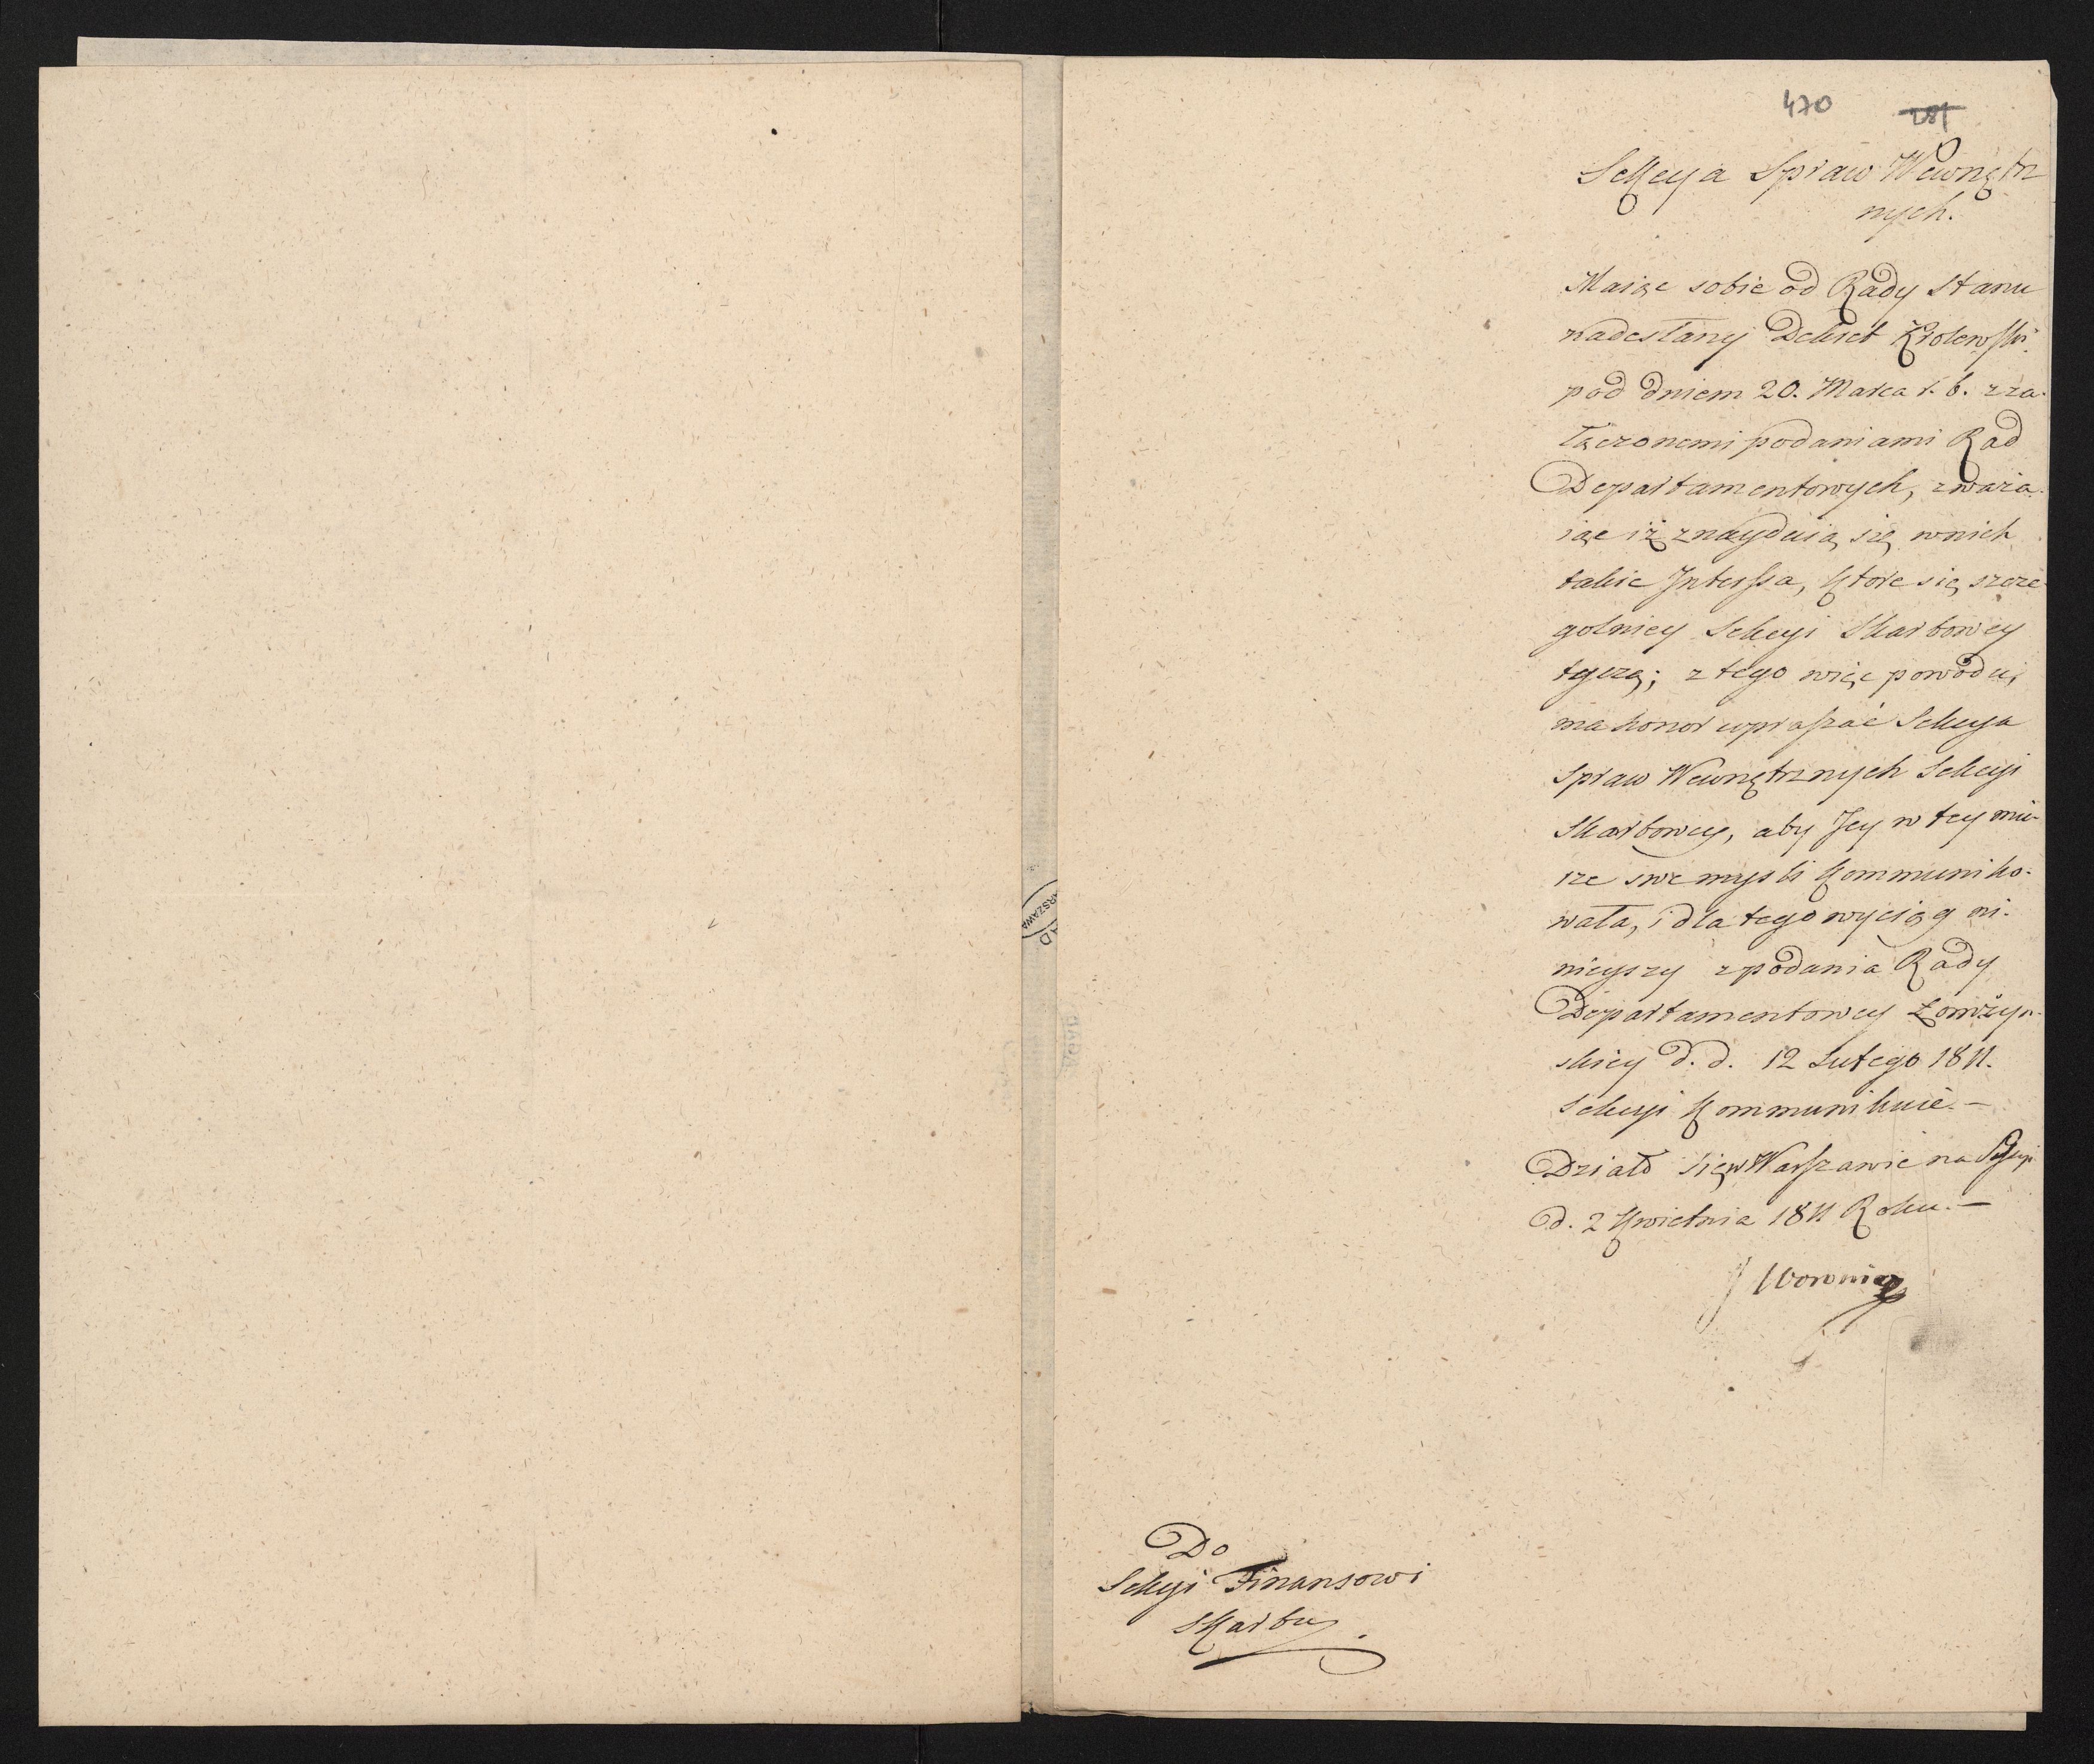 470 281
Sekcya Spraw Wewnętrz
nych.
Maiąc sobie od Rady Stanu
nadesłany Dekret Krolewski
pod dniem 20. Marca r. b. z za-
łączonemi podaniami Rad
Departamentowych, zważa-
iąc iż znayduią się w nich
takie Interssa, ktore się szcze-
golniey Sekcyi Skarbowey
tyczą; z tego więc powodu,
ma honor upraszać Sekcya
Spraw Wewnętrznych Sekcyi
Skarbowey, aby Jey w tey mie-
rze swe myśli kommuniko-
wała, i dla tego wyciąg ni-
nieyszy z podania Rady
Departamentowey Łomżyn-
skiey d. d. 12 Lutego 1811.
Sekcyi Kommunikuie.—
Działo się w Warszawie na Sessyi
d. 2 Kwietnia 1811 Roku.—
J Woronicz
Do
Sekcyi Finansowi
Skarbu.